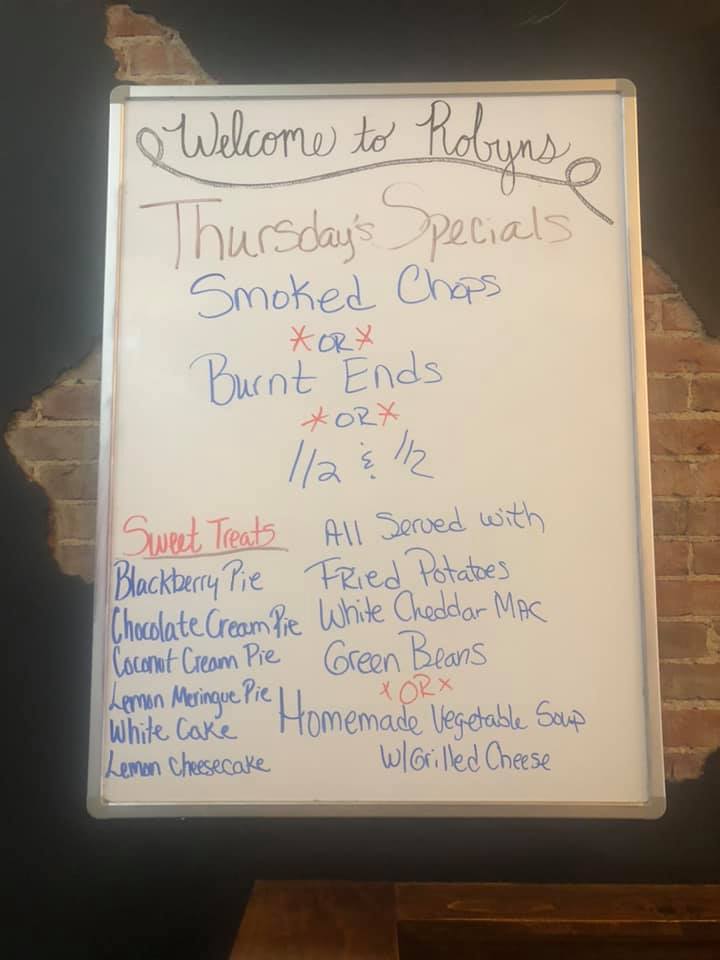 Welcome to Robyns
Thursday's Specials
Smoked Chops
*OR*
Burnt Ends
*OR*
1/2 & 1/2
Sweet Treats
Blackberry Pie
Chocolate Cream Pie
Coconut Cream Pie
Lemon Meringue Pie
White Cake
Lemon Cheesecake
All Served with
Fried Potatoes
White Cheddar Mac
Green Beans
*OR*
Homemade Vegetable Soup
W/Grilled Cheese